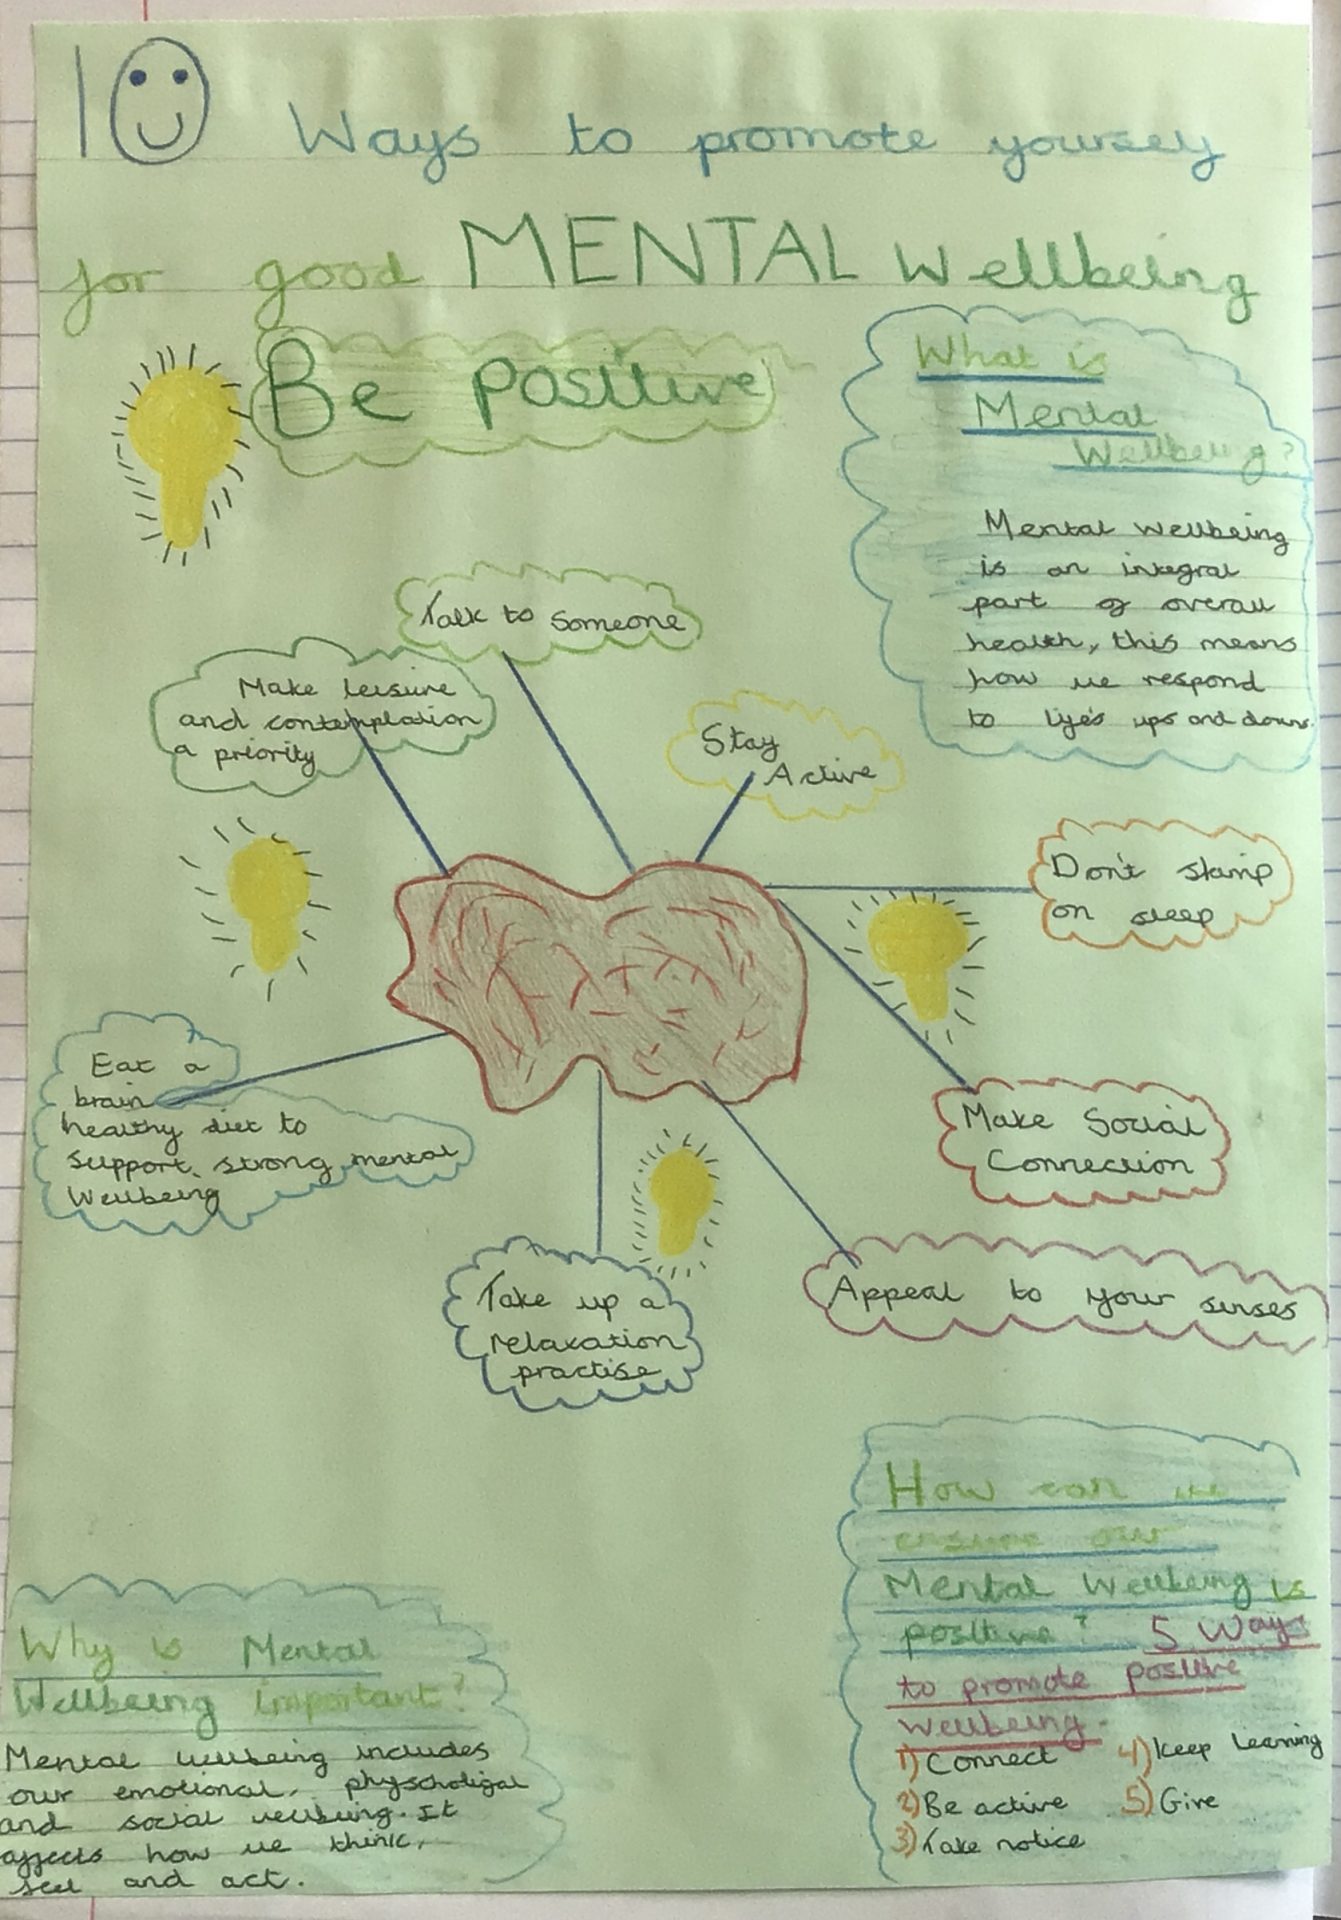 10 Ways to promote yourself
for good MENTAL Wellbeing
Be Positive
What is
Mental
Wellbeing?
Mental Wellbeing
is an integral
part of overall
health, this means
how we respond
to life's ups and downs.
Talk to Someone
Make leisure
and contemplation
a priority
Stay
Active
Don't skimp
on sleep
Make Social
Connection
Appeal to your senses
Take up a
relaxation
practise
Eat a
brain
healthy diet to
support strong mental
Wellbeing
Why is Mental
Wellbeing important?
Mental wellbeing includes
our emotional, physcholigal
and social wellbeing. It
affects how we think,
feel and act.
How can we
ensure our
Mental Wellbeing is
positive? 5 Ways
to promote positive
wellbeing.
1) Connect 4) Keep Learning
2) Be active 5) Give
3) Take notice